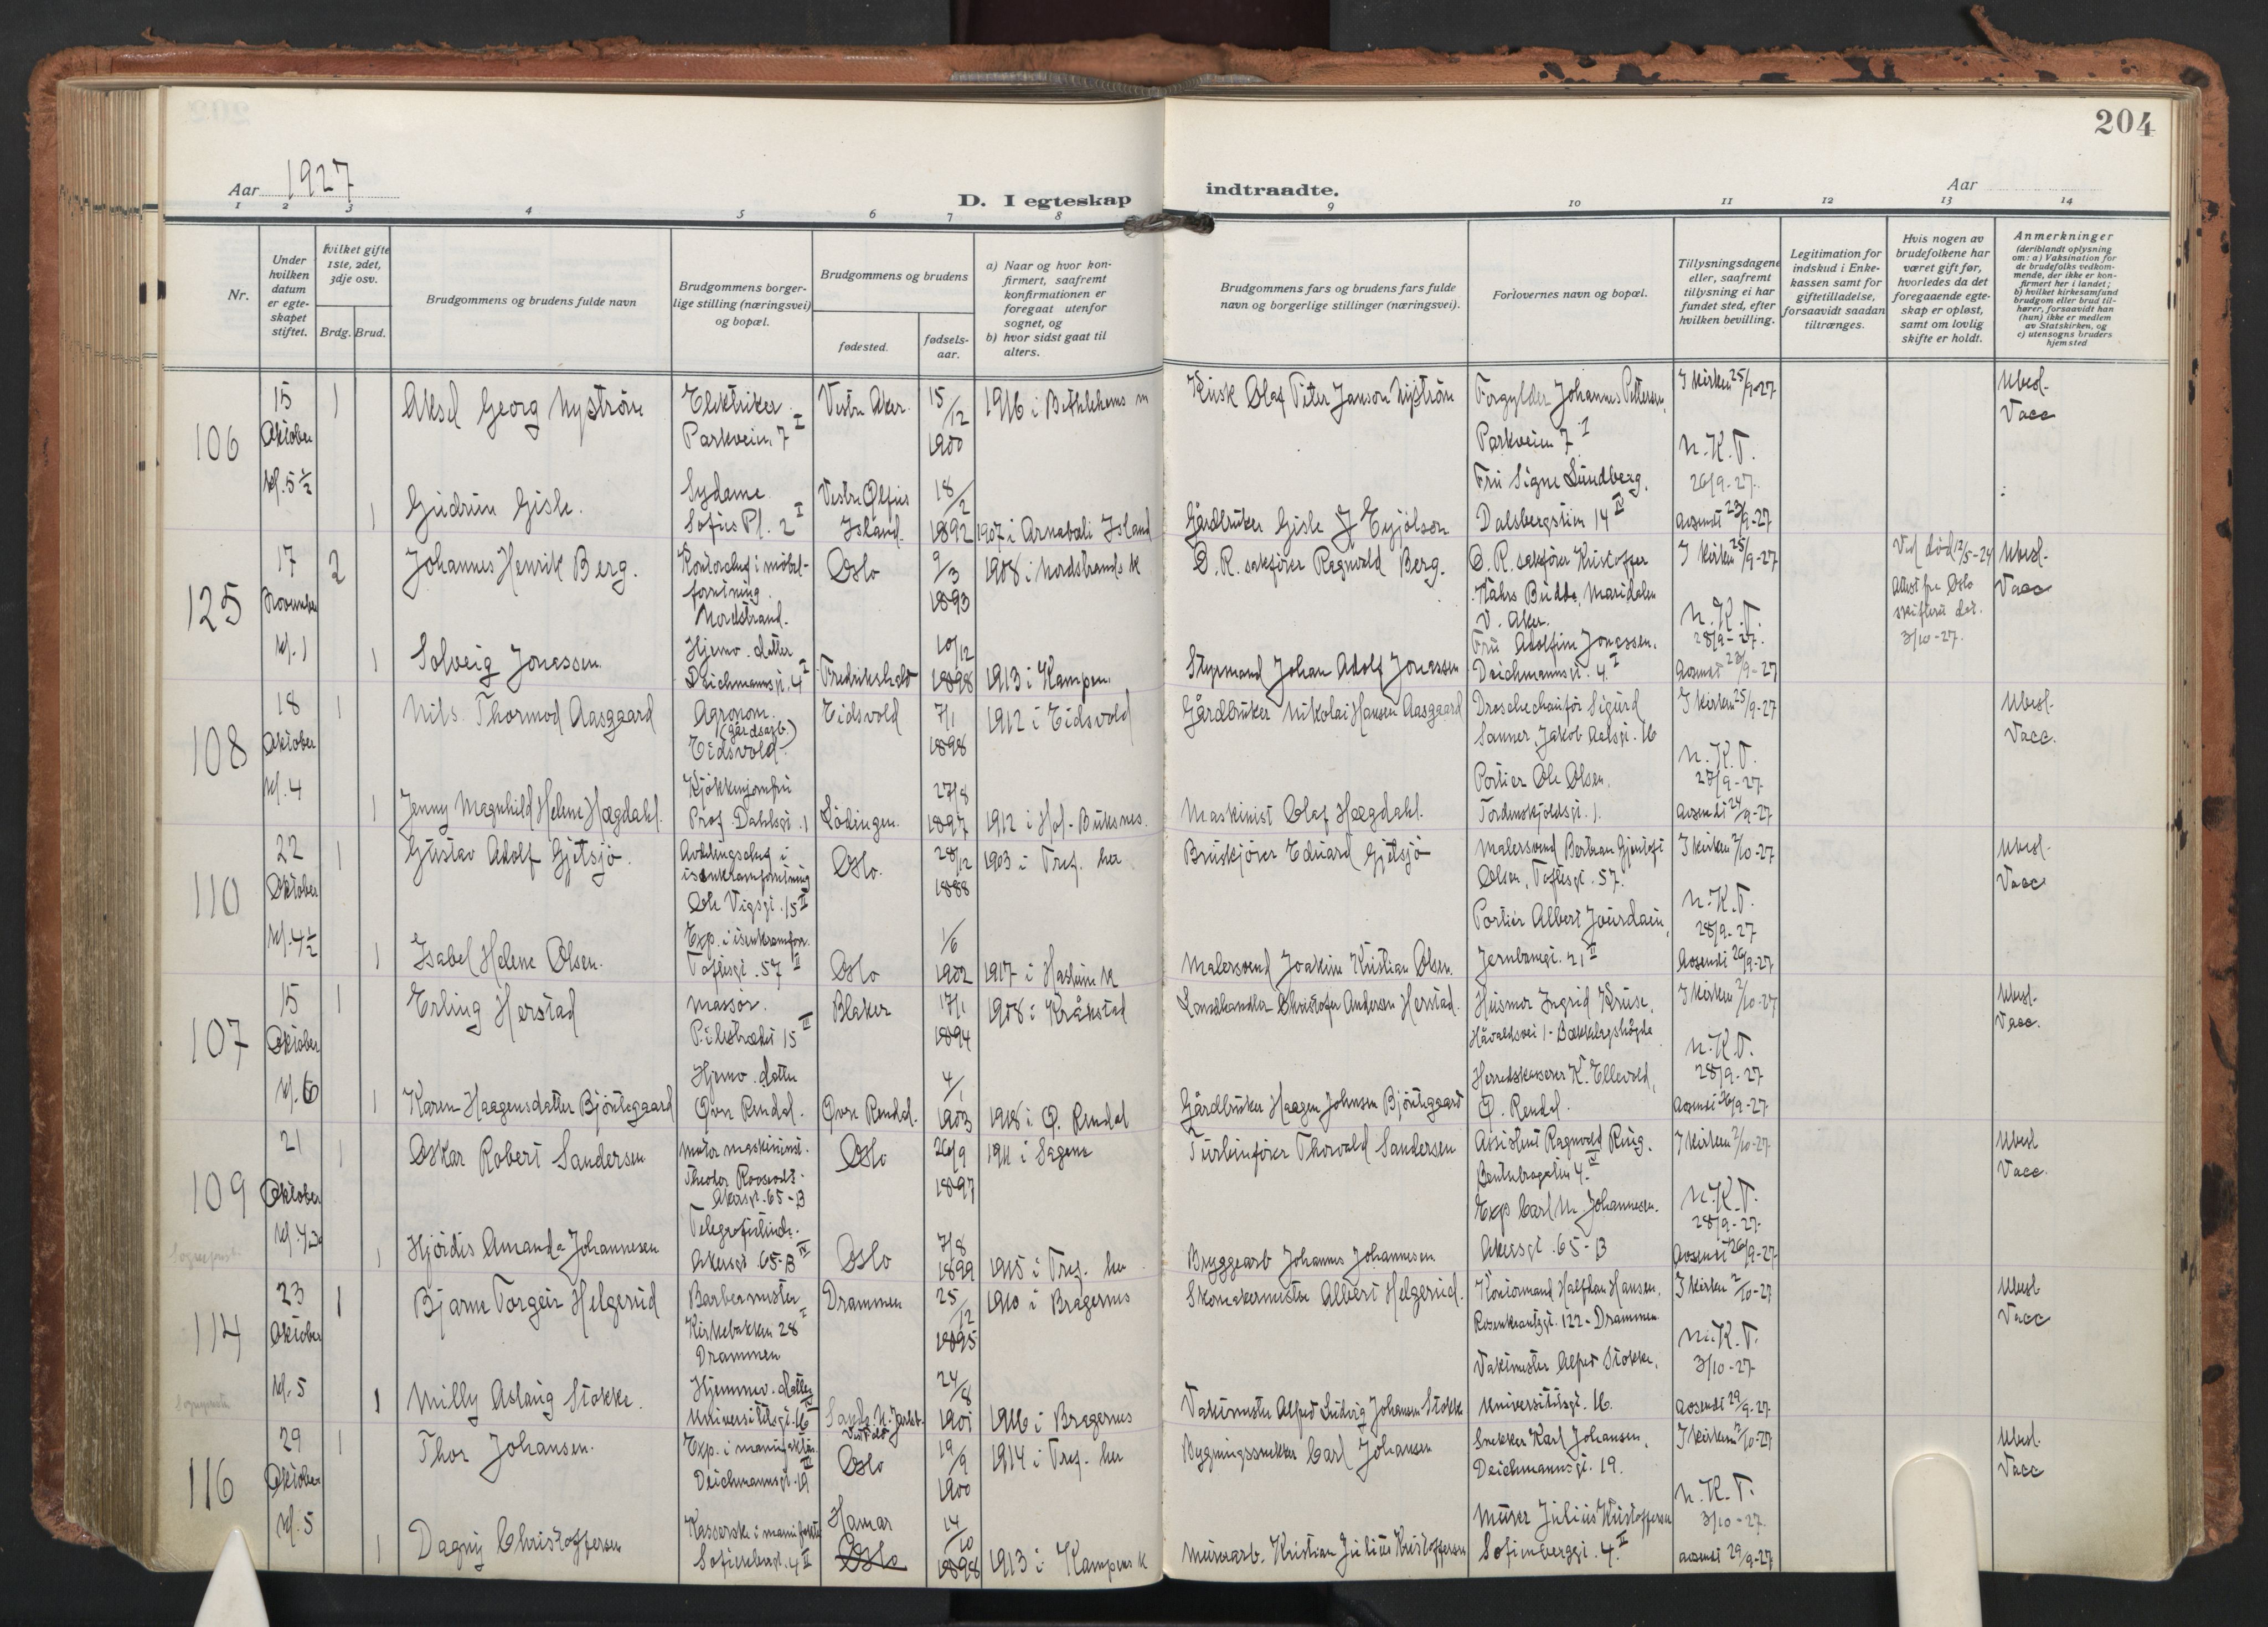 204
Aar 1927
D. I egteskap indtraadte.
Aar
1 2 3 4 5 6 7 8 9 10 11 12 13 14
Nr.
Under hvilken datum er egteskapet stiftet.
hvilket gifte 1ste, 2det, 3dje osv.
Brdg. Brud.
Brudgommens og brudens fulde navn
Brudgommens borgerlige stilling (næringsvei) og bopæl.
Brudgommens og brudens
fødested.
fødselsaar.
a) Naar og hvor konfirmert, saafremt konfirmationen er foregaat utenfor sognet, og
b) hvor sidst gaat til alters.
Brudgommens fars og brudens fars fulde navn og borgerlige stillinger (næringsvei).
Forlovernes navn og bopæl.
Tillysningsdagene eller, saafremt tillysning ei har fundet sted, efter hvilken bevilling.
Legitimation for indskud i Enkekassen samt for giftetilladelse, forsaavidt saadan tiltrænges.
Hvis nogen av brudefolkene har været gift før, hvorledes da det foregaaende egteskap er opløst, samt om lovlig skifte er holdt.
Anmerkninger
(deriblandt oplysning om: a) Vaksination for de brudefolks vedkommende, der ikke er konfirmert her i landet; b) hvilket kirkesamfund brudgom eller brud tilhører, forsaavidt han (hun) ikke er medlem av Statskirken, og c) utensogns bruders hjemsted
106 15 Oktober kl. 5½
1 Aksel Georg Nyström Elektriker Parkveien 7 I Vestre Aker 15/12 1900 1916 i Bethlehems m
Kusk Olaf Peter Janson Nyström Forgylder Johannes Pettersen, Parkveien 7 I I kirken 25/9-27 N.K.T. 26/9-27. Ubesl- Vacc
1 Gudrun Gisle. Sydame Sofies Pl. 2 I Vestre Ølfus Island. 18/2 1892 1907 i Arnabæli Island
Gårdbruker Gisle J Eyjolson Fru Signe Lundberg. Dalsbergstien 14 IV Avsendt 23/9-27
125 17 November kl. 1
2 Johannes Henrik Berg. Kontorchef i møbelforretning. Nordstrand. Oslo 9/3 1893 1908 i Nordstrands k
O.R. sakfører Ragnvald Berg. O.R. sakfører Kristoffer Nahrs Budde, Maridalen V. Aker. I kirken 25/9-27 N.K.T. 28/9-27. Ved død 12/5-24 Attest fra Oslo skifteret dat. 3/10-27. Ubesl- Vacc
1 Solveig Jonassen Hjemv. datter Deichmannsgt. 4 I Fredrikshald 10/12 1898 1913 i Kampen.
Styrmand Johan Adolf Jonassen Fru Adolfine Jonassen. Deichmannsgt. 4 I Avsendt 23/9-27
108 18 Oktober kl. 4
1 Nils Thormod Aasgaard Agronom (gårdsarb.) Eidsvold Eidsvold 7/1 1898 1912 i Eidsvold
Gårdbruker Nikolai Hansen Aasgaard Droschechauför Sigurd Sanner, Jakob Aalsgt. 16 I kirken 25/9-27 N.K.T. 27/9-27. Ubesl- Vacc.
1 Jenny Magnhild Helene Hægdahl. Kjøkkenjomfru Prof. Dahlsgt. 1 Lödingen. 27/8 1897 1912 i Hol-Buksnes.
Maskinist Olaf Hægdahl. Portier Ole Olsen. Tordenskjoldsgt. 1. Avsendt 24/9-27
110 22 Oktober kl. 4½
1 Gustav Adolf Gjetsjö. Avdelingschef i isenkramforretning Ole Vigsgt. 15 II Oslo. 28/12 1888 1903 i Tref. her
Bruskjører Edvard Gjetsjö Malersvend Bertran Gjentoft Olsen, Toftesgt. 57. I kirken 2/10-27 N.K.T. 28/9-27 Ubesl- Vacc
1 Isabel Helene Olsen. Exp. i isenkramforr. Toftesgt. 57 II Oslo 1/6 1902 1917 i Haslum k
Malersvend Joakim Kristian Olsen. Portier Albert Jourdain, Jernbanegt. 21 II Avsendt 26/9-27
107 15 Oktober kl. 6
1 Erling Herstad Massör. Pilestrædet 15 III Blaker 17/1 1894 1908 i Kråkstad
Landhandler Christofer Andersen Herstad. Husmor Ingrid Kruse, Håvaldsvei 1-Bækkelagshøgda I kirken 2/10-27 N.K.T. 28/9-27 Ubesl- Vacc.
1 Karen Haagensdatter Bjöntegaard Hjemv. datter Øvre Rendal. Øvre Rendal. 4/1 1903 1918 i Ø. Rendal
Gårdbruker Haagen Johnsen Bjöntegaard Herredskasserer K. Ellevold, Ø. Rendal. Avsendt 26/9-27
109 21 Oktober
1 Oskar Robert Sandersen Motor maskinist. Theodor Roosevelt. Akersgt. 65-B Oslo 26/9 1897 1911 i Sagene
Turbinfører Thorvald Sandersen Assistent Ragnvald Ring. Bentsebrogaten 4 I kirken 2/10-27 N.K.T. 28/9-27. Ubesl Vacc.
1 Hjördis Amanda Johannesen Telegrafistinde. Akersgt. 65-B IV Oslo 7/8 1899 1915 i Tref. her
Bryggearb Johannes Johannesen Exp Carl M. Johannesen. Akersgt. 65-B Avsendt 26/9-27
114 23 Oktober kl. 5
1 Bjarne Torgeir Helgerud Barbermester Kirkebakken 28 Drammen Drammen 25/12 1895 1910 i Bragernes
Skomakermester Albert Helgerud. Kontormand Halfdan Hansen, Rosenkrantzgt. 122-Drammen. I kirken 2/10-27 N.K.T. 3/10-27. Ubesl Vacc
1 Milly Aslaug Stokke. Hjemmev. datter Universitetsgt. 16 Sande N. Jarlsb. Vestfold 24/8 1901 1916 i Bragernes
Vaktmester Alfred Ludvig Johannes Stokke Vaktmester Alfred Stokke, Universitetsgt. 16. Avsendt 29/9-27
116 29 Oktober kl. 5
1 Thor Johansen. Exp. i manufaktur Deichmannsgt. 19 Oslo 19/9 1900 1914 i Tref. her
Bygningssnekker Carl Johansen Snekker Karl Johansen, Deichmannsgt. 19. I kirken 2/10-27 N.K.T. 3/10-27. Ubesl. Vacc
1 Dagny Christoffersen Kassererske i manufaktur Sofienbergt. 4 II Hamar Oslo 14/10 1898 1913 i Kampens k
Murerarb. Kristian Julius Kristoffersen Murer Julius Kristoffersen Sofienberggt. 4. II Avsendt 29/9-27